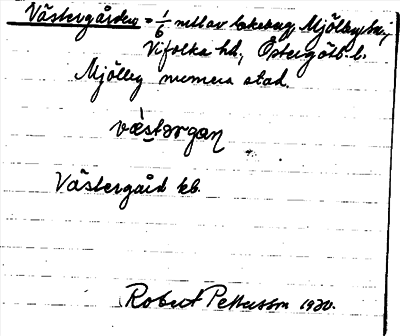 Västergården = 1/6 mtl av Mjölby sn,
Vifolka hd, Östergötl. l.
Mjölby numera stad.
västərgan
Västergård kb.
Robert Pettersson 1920.